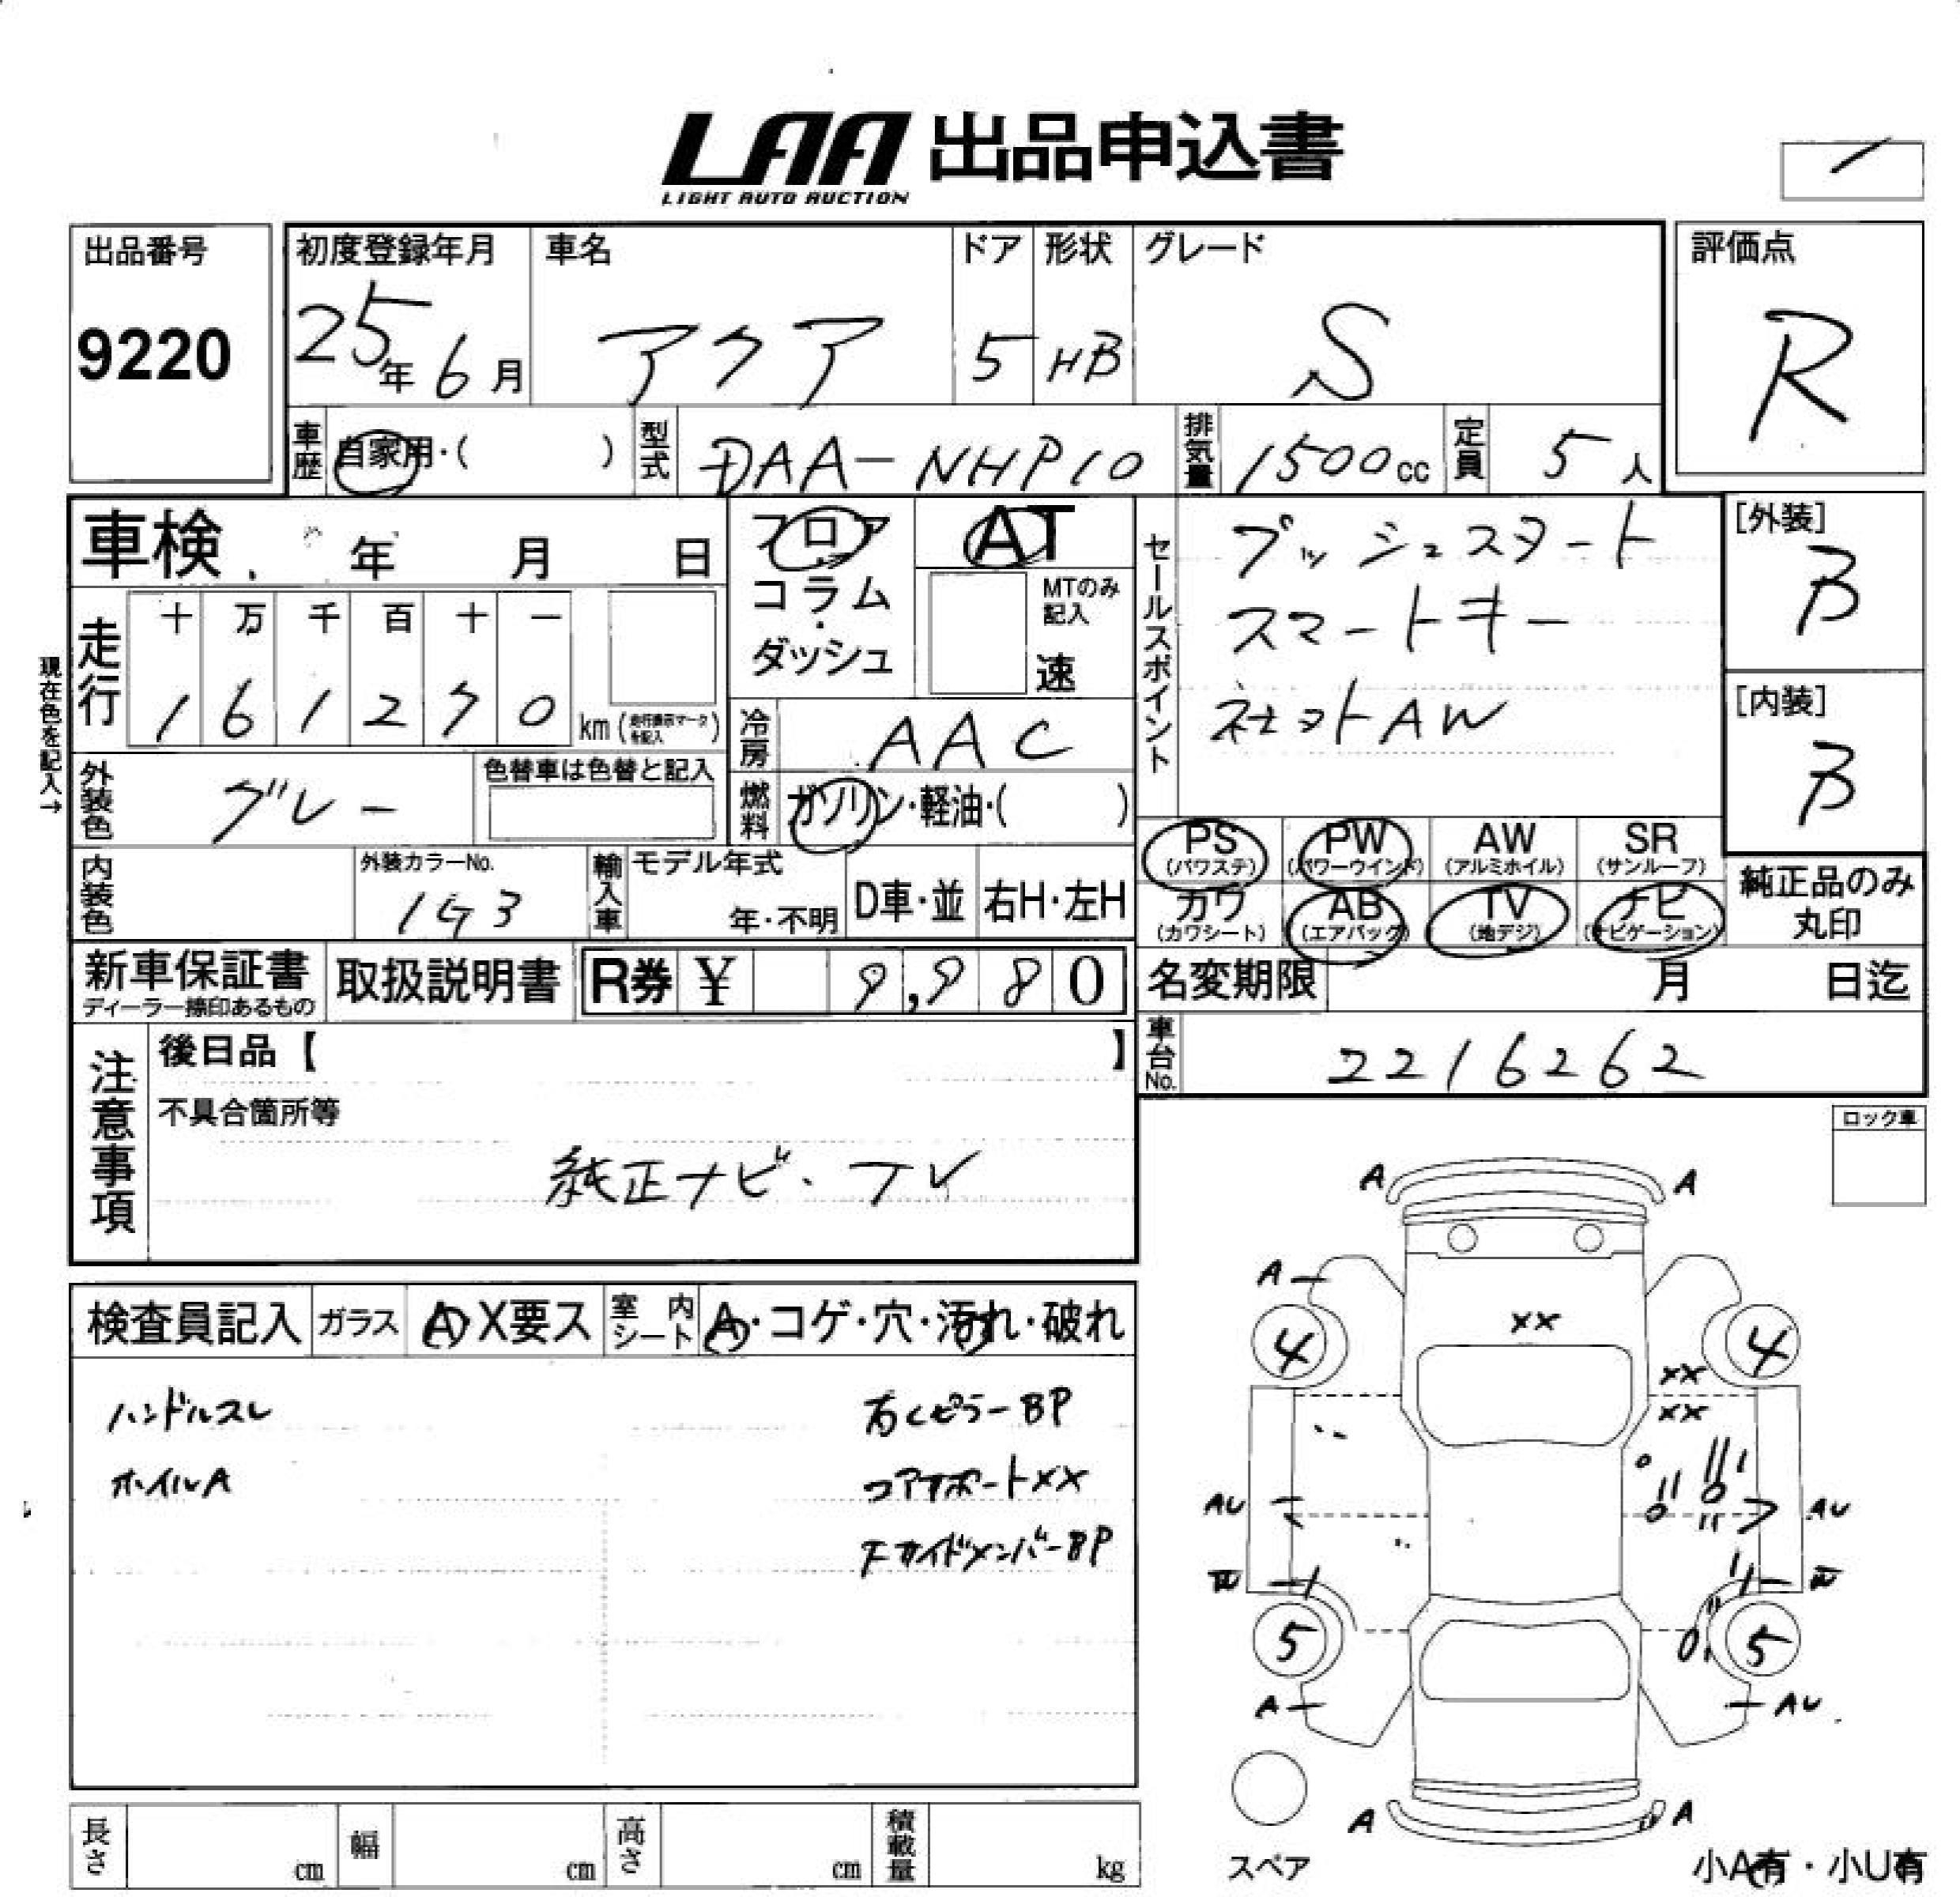 LAA 出品申込書
LIGHT AUTO AUCTION
出品番号
9220
初度登録年月
25年 6月
車名
アクア
ドア
5
形状
HB
グレード
S
評価点
R
車歴
自家用・( )
型式
DAA-NHP10
排気量
1500cc
定員
5人
車検 年 月 日
フロア
コラム
ダッシュ
AT
MTのみ
記入
速
セールスポイント
プッシュスタート
スマートキー
社外AW
[外装]
B
[内装]
B
現在色を記入→
走行
十 万 千 百 十 一
1 6 1 2 7 0
km (走行表示マークを記入)
冷房
AAC
燃料
ガソリン・軽油・( )
外装色
グレー
色替車は色替と記入
内装色
外装カラーNo.
1G3
輸入車
モデル年式
年・不明
D車・並
右H・左H
PS
(パワステ)
PW
(パワーウインド)
AW
(アルミホイル)
SR
(サンルーフ)
カワ
(カワシート)
AB
(エアバッグ)
TV
(地デジ)
ナビ
(ナビゲーション)
純正品のみ
丸印
新車保証書
ディーラー捺印あるもの
取扱説明書
R券 ¥ 9,980
名変期限 月 日迄
車台No.
2216262
注意事項
後日品【 】
不具合箇所等
純正ナビ・TV
ロック車
検査員記入
ガラス
A・X要ス
室内
シート
A・コゲ・穴・汚れ・破れ
ハンドルスレ
ホイルA
右Cピラー BP
コアサポートXX
FサイドメンバーBP
A A
A
XX
4 4
XX
XX
AU AU
5 5
A AU
A A
スペア
小A有・小U有
長さ cm
幅 cm
高さ cm
積載量 kg